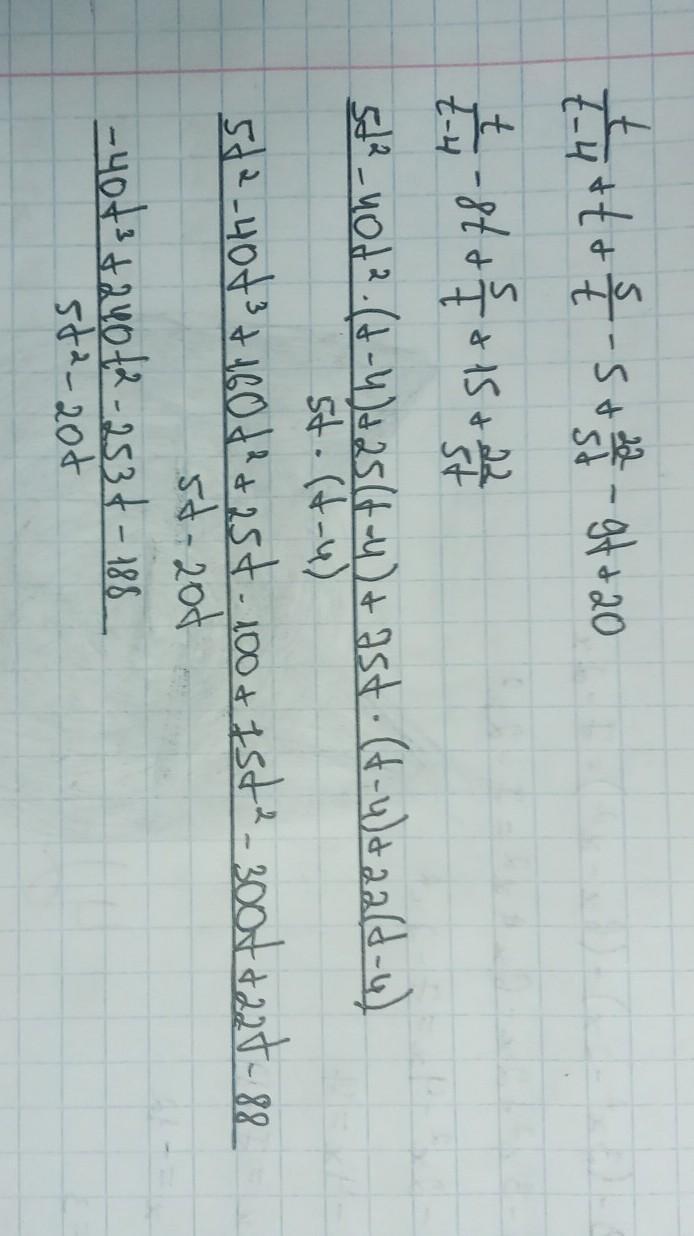 t/(t-4) + t + 5/t - 5 + 22/5t - 9t + 20
t/(t-4) - 8t + 5/t + 15 + 22/5t
5t² - 40t² · (t-4) + 25(t-4) + 75t · (t-4) + 22(t-4)
5t · (t-4)
5t² - 40t³ + 160t² + 25t - 100 + 75t² - 300t + 22t - 88
5t - 20t
-40t³ + 240t² - 253t - 188
5t² - 20t